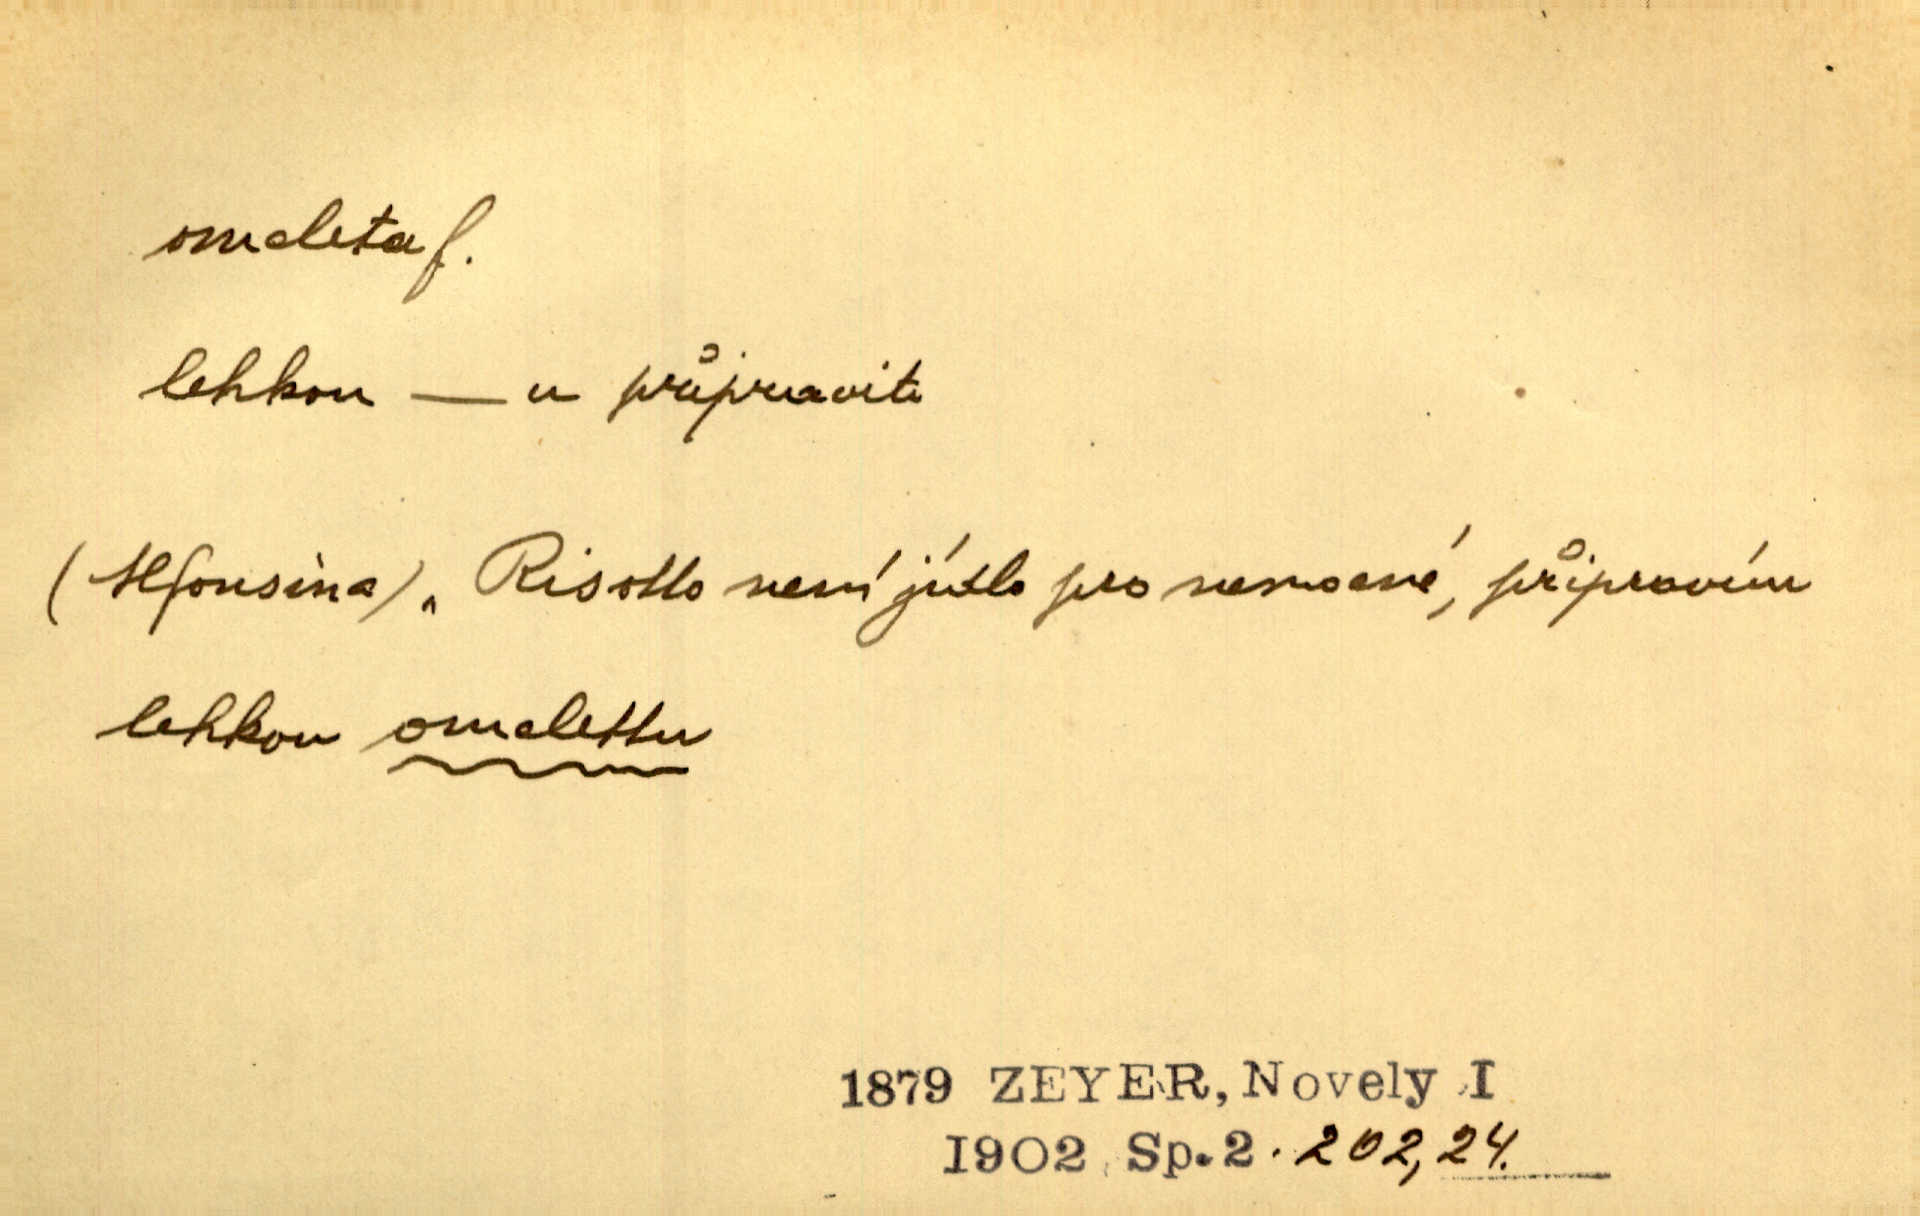 omeleta f.
lehkou — u připraviti
(Alfonsina) „Risotto není jídlo pro nemocné, připravím
lehkou omelettu
1879 ZEYER, Novely I
1902 Sp. 2. 202,24.